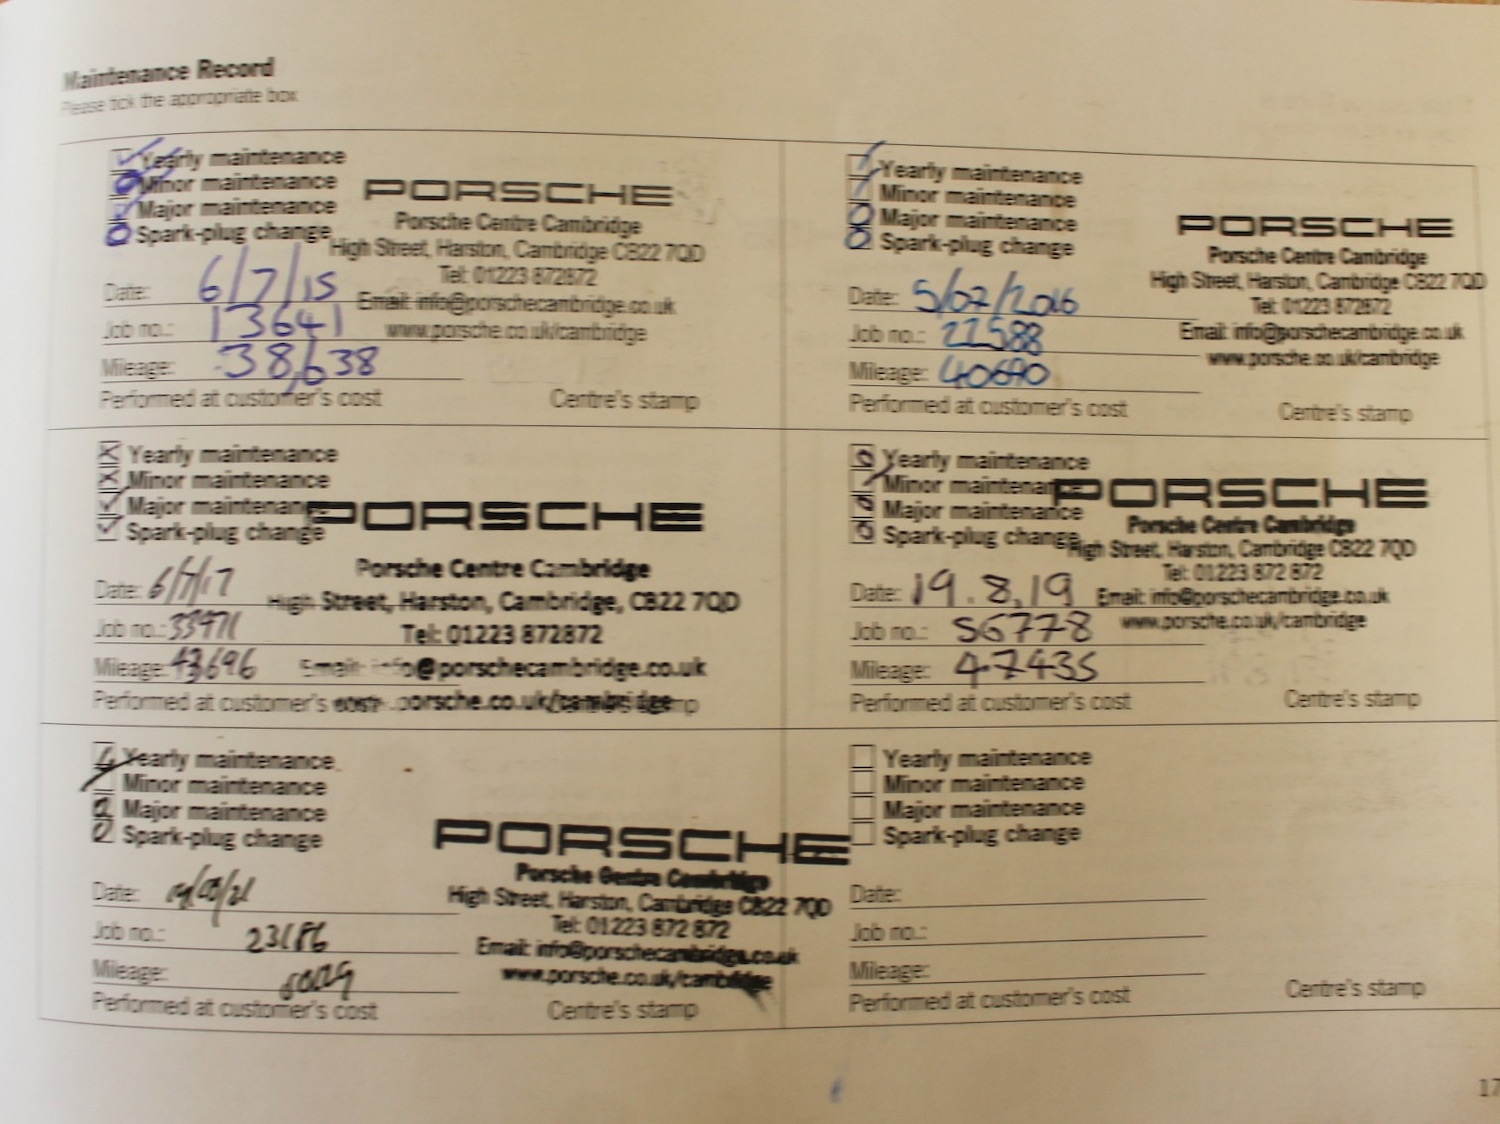 Maintenance Record
Please tick the appropriate box
Yearly maintenance
Minor maintenance
Major maintenance
Spark-plug change
Date: 6/7/15
Job no.: 13641
Mileage: 38,638
Performed at customer's cost
PORSCHE
Porsche Centre Cambridge
High Street, Harston, Cambridge CB22 7QD
Tel: 01223 872872
Email: info@porschecambridge.co.uk
www.porsche.co.uk/cambridge
Centre's stamp
Yearly maintenance
Minor maintenance
Major maintenance
Spark-plug change
Date: 5/07/2016
Job no.: 22588
Mileage: 40690
Performed at customer's cost
PORSCHE
Porsche Centre Cambridge
High Street, Harston, Cambridge CB22 7QD
Tel: 01223 872872
Email: info@porschecambridge.co.uk
www.porsche.co.uk/cambridge
Centre's stamp
Yearly maintenance
Minor maintenance
Major maintenance
Spark-plug change
Date: 6/7/17
Job no.:
Mileage: 43696
Performed at customer's cost
PORSCHE
Porsche Centre Cambridge
High Street, Harston, Cambridge, CB22 7QD
Tel: 01223 872872
Email: info@porschecambridge.co.uk
porsche.co.uk/cambridge
Yearly maintenance
Minor maintenance
Major maintenance
Spark-plug change
Date: 19.8.19
Job no.: 56778
Mileage: 47435
Performed at customer's cost
PORSCHE
Porsche Centre Cambridge
High Street, Harston, Cambridge CB22 7QD
Tel: 01223 872 872
Email: info@porschecambridge.co.uk
www.porsche.co.uk/cambridge
Centre's stamp
Yearly maintenance
Minor maintenance
Major maintenance
Spark-plug change
Date:
Job no.: 23186
Mileage:
Performed at customer's cost
PORSCHE
Porsche Centre Cambridge
High Street, Harston, Cambridge CB22 7QD
Tel: 01223 872 872
Email: info@porschecambridge.co.uk
www.porsche.co.uk/cambridge
Centre's stamp
Yearly maintenance
Minor maintenance
Major maintenance
Spark-plug change
Date:
Job no.:
Mileage:
Performed at customer's cost
Centre's stamp
17